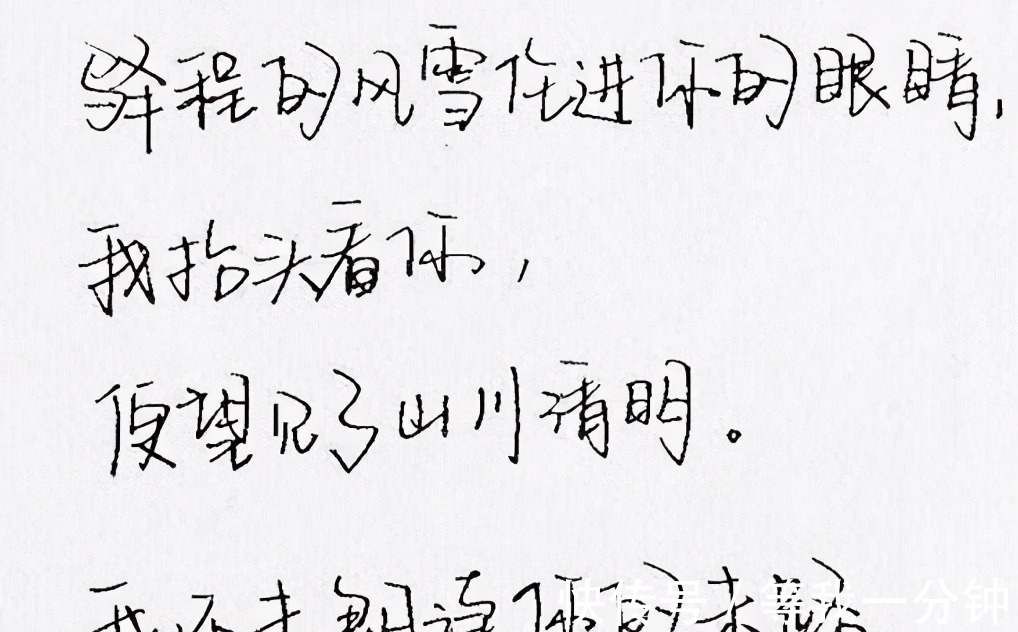 驿程的风雪住进你的眼睛,
我抬头看你,
便望见了山川清明。
我还未朗读你的来
快传号 / 等我一分钟